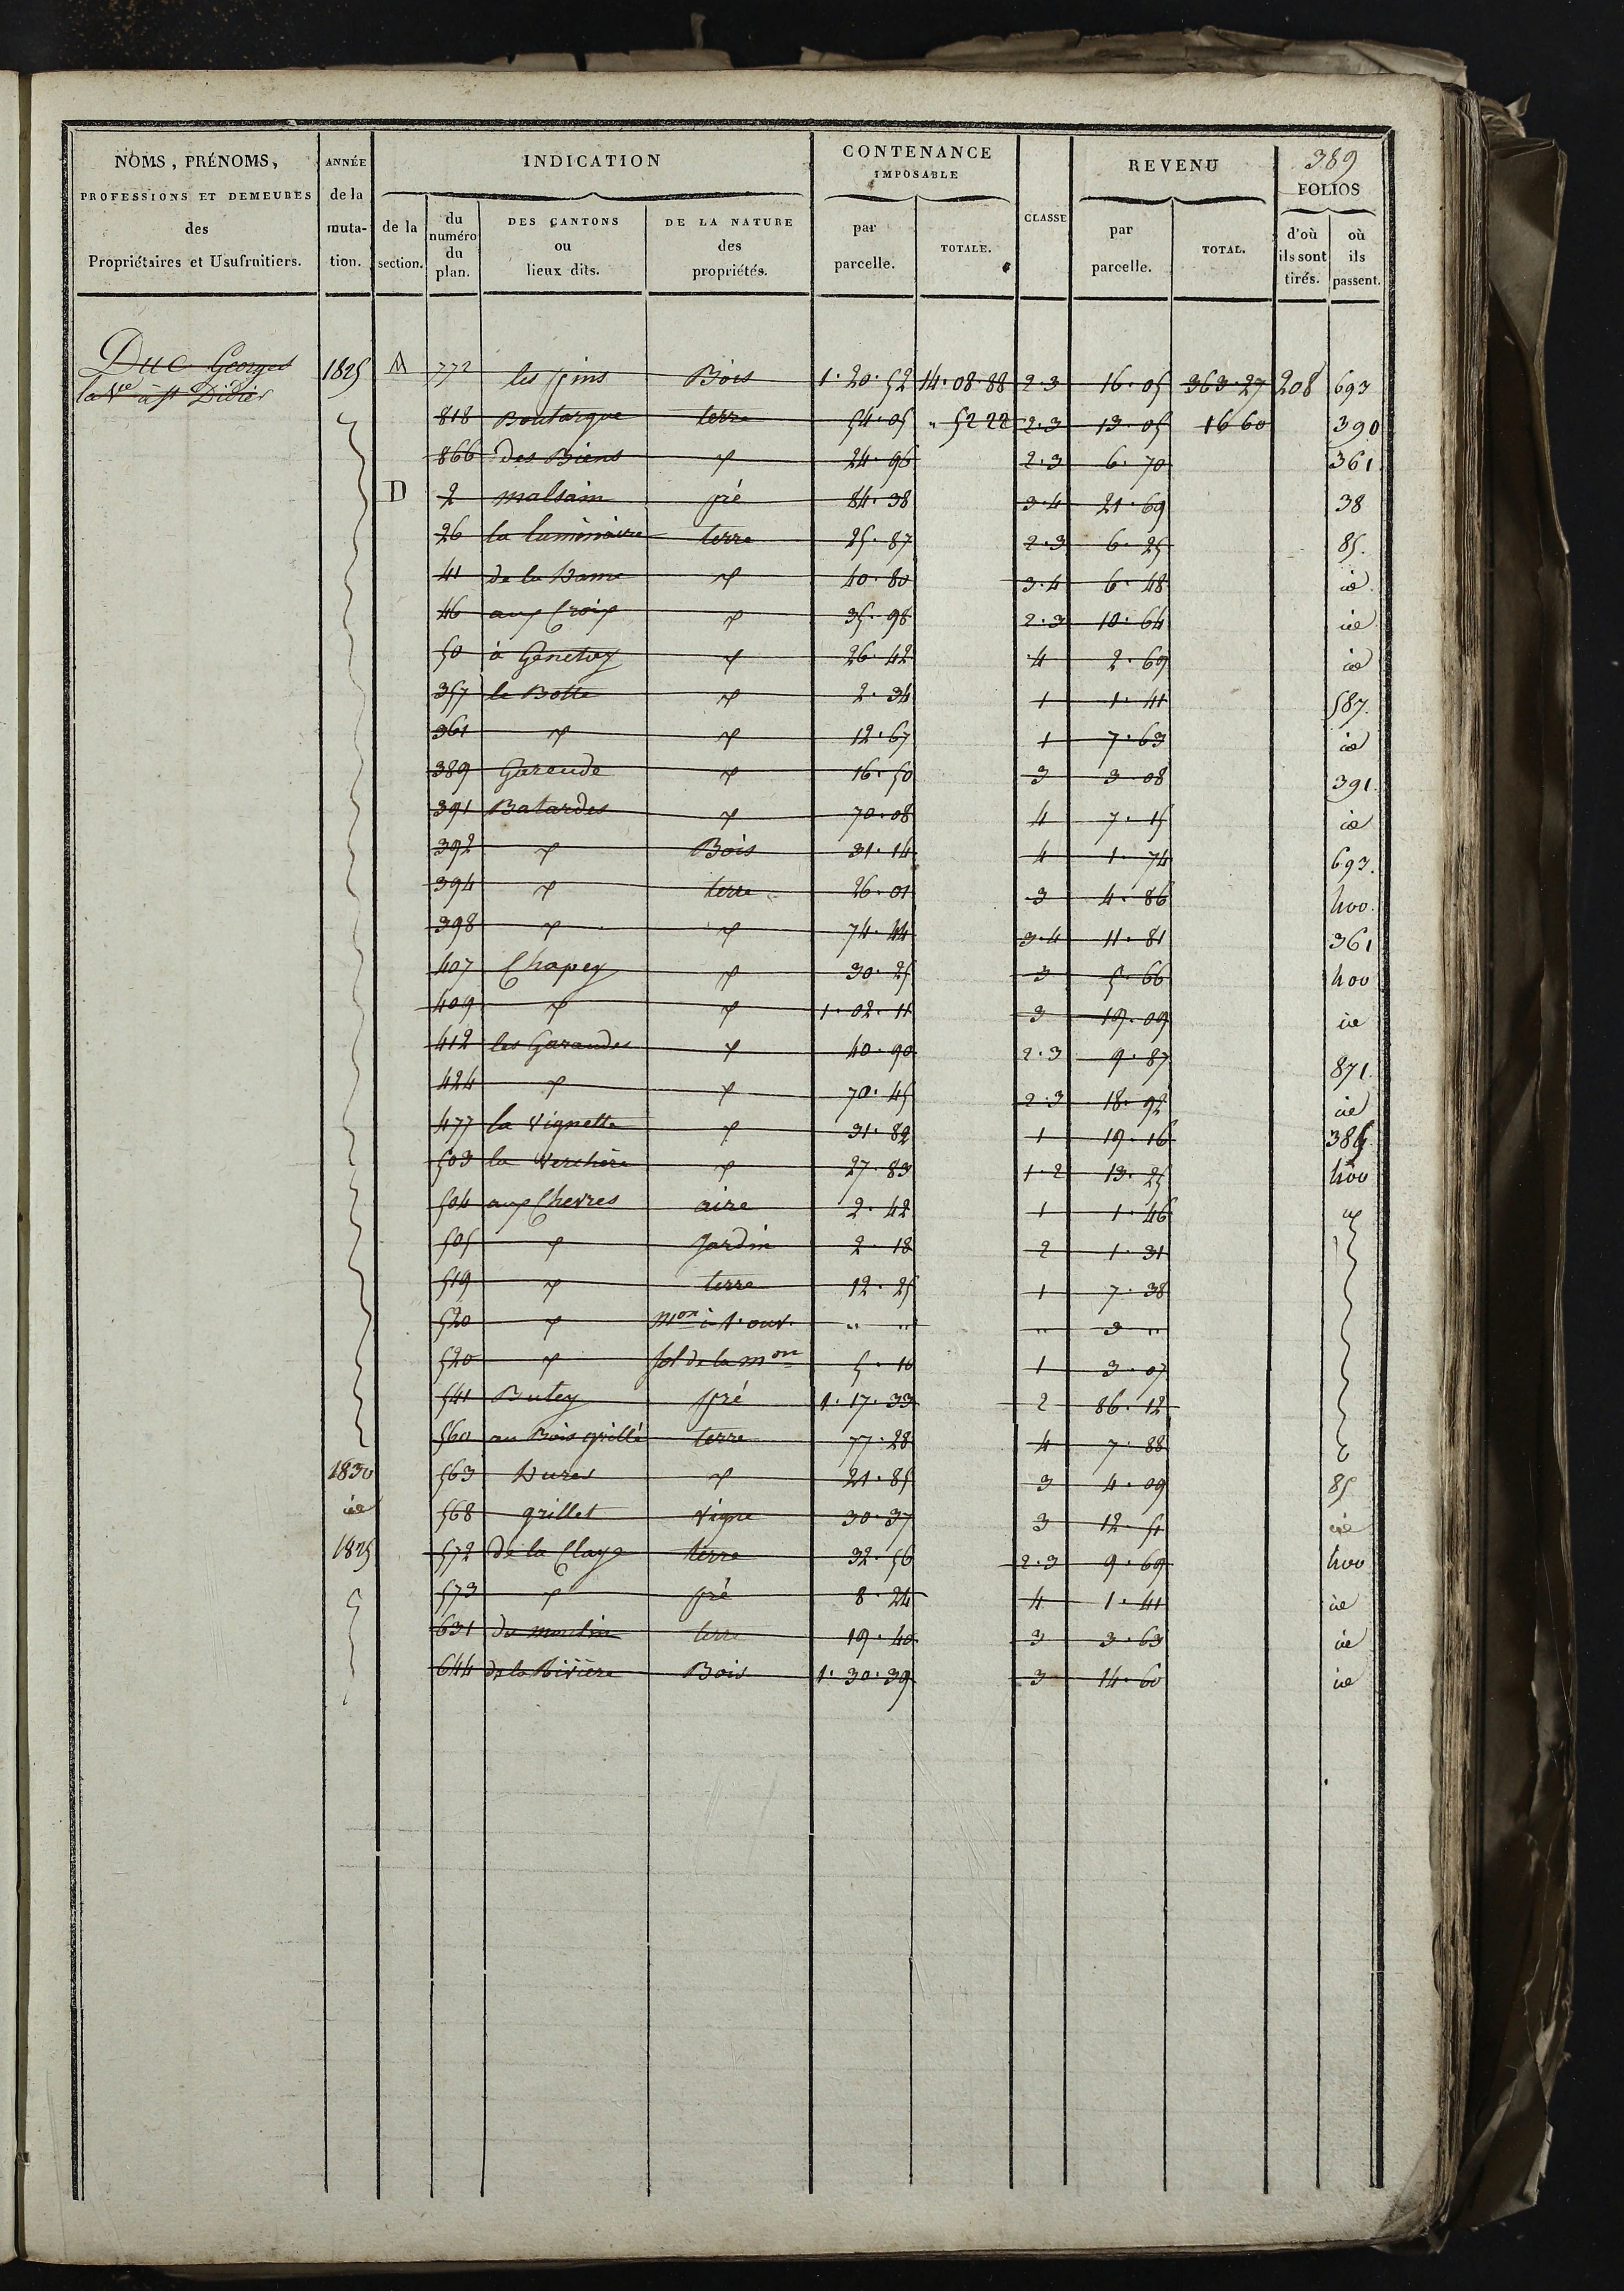 389
NOMS, PRÉNOMS, PROFESSIONS ET DEMEURES des Propriétaires et Usufruitiers. | ANNÉE de la muta-tion. | INDICATION de la section. | du numéro du plan. | DES CANTONS ou lieux dits. | DE LA NATURE des propriétés. | CONTENANCE IMPOSABLE par parcelle. | TOTALE. | CLASSE | REVENU par parcelle. | TOTAL. | FOLIOS d'où ils sont tirés. | où ils passent.
Duc Georges 1825 A 772 les pins Bois 1.20.52 14.08.88 2.3 16.05 363.27 208 693
la Ve à St Didier
818 Boutarque terre 54.05 " 52 22 2.3 13.05 16 60 390
866 des Biens " 24.96 2.3 6.70 361
D 2 malsain pré 84.38 3.4 21.69 38
26 la luminaire terre 25.87 2.3 6.25 85.
41 de la Dame " 40.80 3.4 6.48 id
46 aux Croix " 35.98 2.3 10.64 id
50 à Genetey " 26.42 4 2.69 id
357 le Botte " 2.34 1 1.41 587.
361 " " 12.67 1 7.63 id
389 Garende " 16.50 3 3.08 391.
391 Batardes " 70.08 4 7.15 id
392 " Bois 31.14 4 1.74 693.
394 " terre 26.01 3 4.86 400.
398 " " 74.44 3.4 11.81 361
407 Chapey " 30.25 3 5.66 400
409 " " 1.02.11 3 19.09 id
412 les Garandes " 40.90 2.3 9.87 871.
424 " " 70.45 2.3 18.92 id
477 la Vignette " 31.82 1 19.16 385
503 la Verchère " 27.83 1.2 13.25 400
504 aux Chevres aire 2.42 1 1.46 "
505 " Jardin 2.18 2 1.31
519 " terre 12.25 1 7.38
520 " Mon à 1. ouv. " " " 3 "
520 " sol de la mon 5.10 1 3.07
541 Butey pré 1.17.33 2 86.12
560 au Bois grillé terre 77.28 4 7.88
1830 563 Dures " 21.85 3 4.09 85
id 568 grillet vigne 30.37 3 12.51 id
1825 572 de la Claye terre 32.56 2.3 9.69 400
573 " pré 8.24 4 1.41 id
631 du moulin terre 19.40 3 3.63 id
644 de la Rivière Bois 1.30.39 3 14.60 id